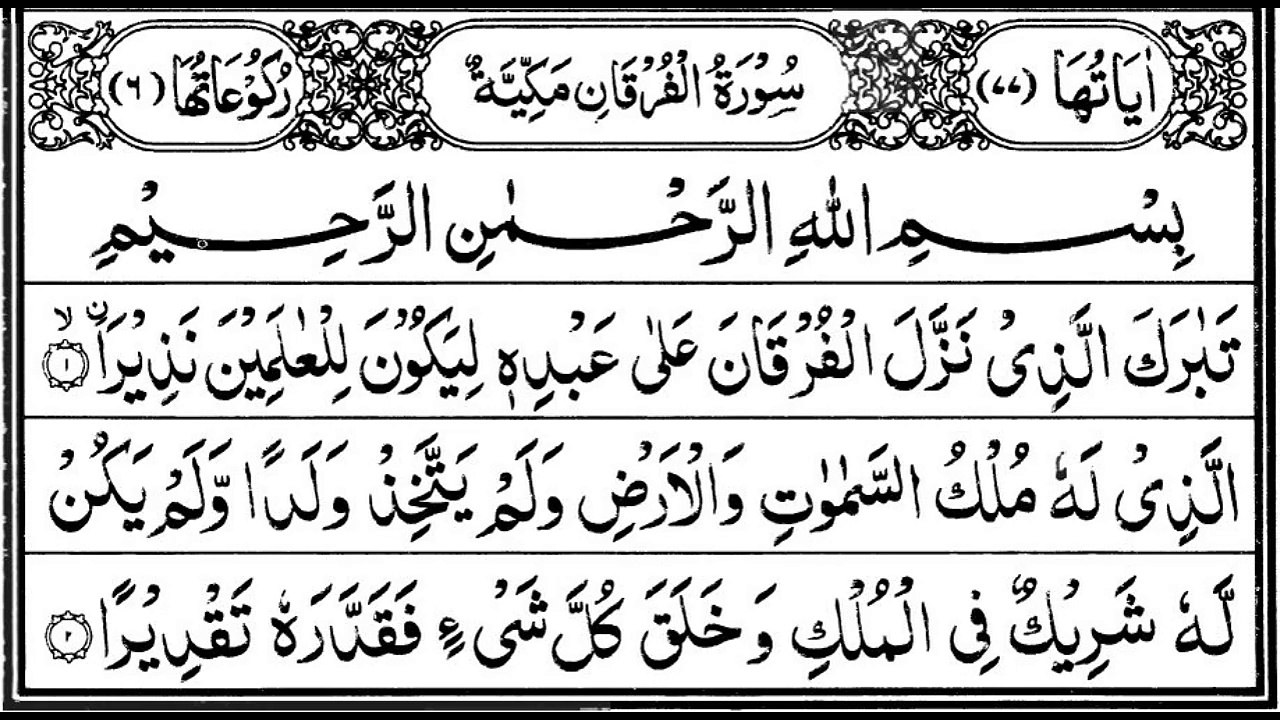 اٰيَاتُهَا (٧٧) سُوْرَةُ الْفُرْقَانِ مَكِّيَّةٌ رُكُوْعَاتُهَا (٦)
بِسْمِ اللهِ الرَّحْمٰنِ الرَّحِيْمِ
تَبٰرَكَ الَّذِىْ نَزَّلَ الْفُرْقَانَ عَلٰى عَبْدِهٖ لِيَكُوْنَ لِلْعٰلَمِيْنَ نَذِيْرَاۨ ۙ ﴿١﴾
الَّذِىْ لَهٗ مُلْكُ السَّمٰوٰتِ وَالْاَرْضِ وَلَمْ يَتَّخِذْ وَلَدًا وَّلَمْ يَكُنْ
لَّهٗ شَرِيْكٌ فِى الْمُلْكِ وَخَلَقَ كُلَّ شَىْءٍ فَقَدَّرَهٗ تَقْدِيْرًا ﴿٢﴾